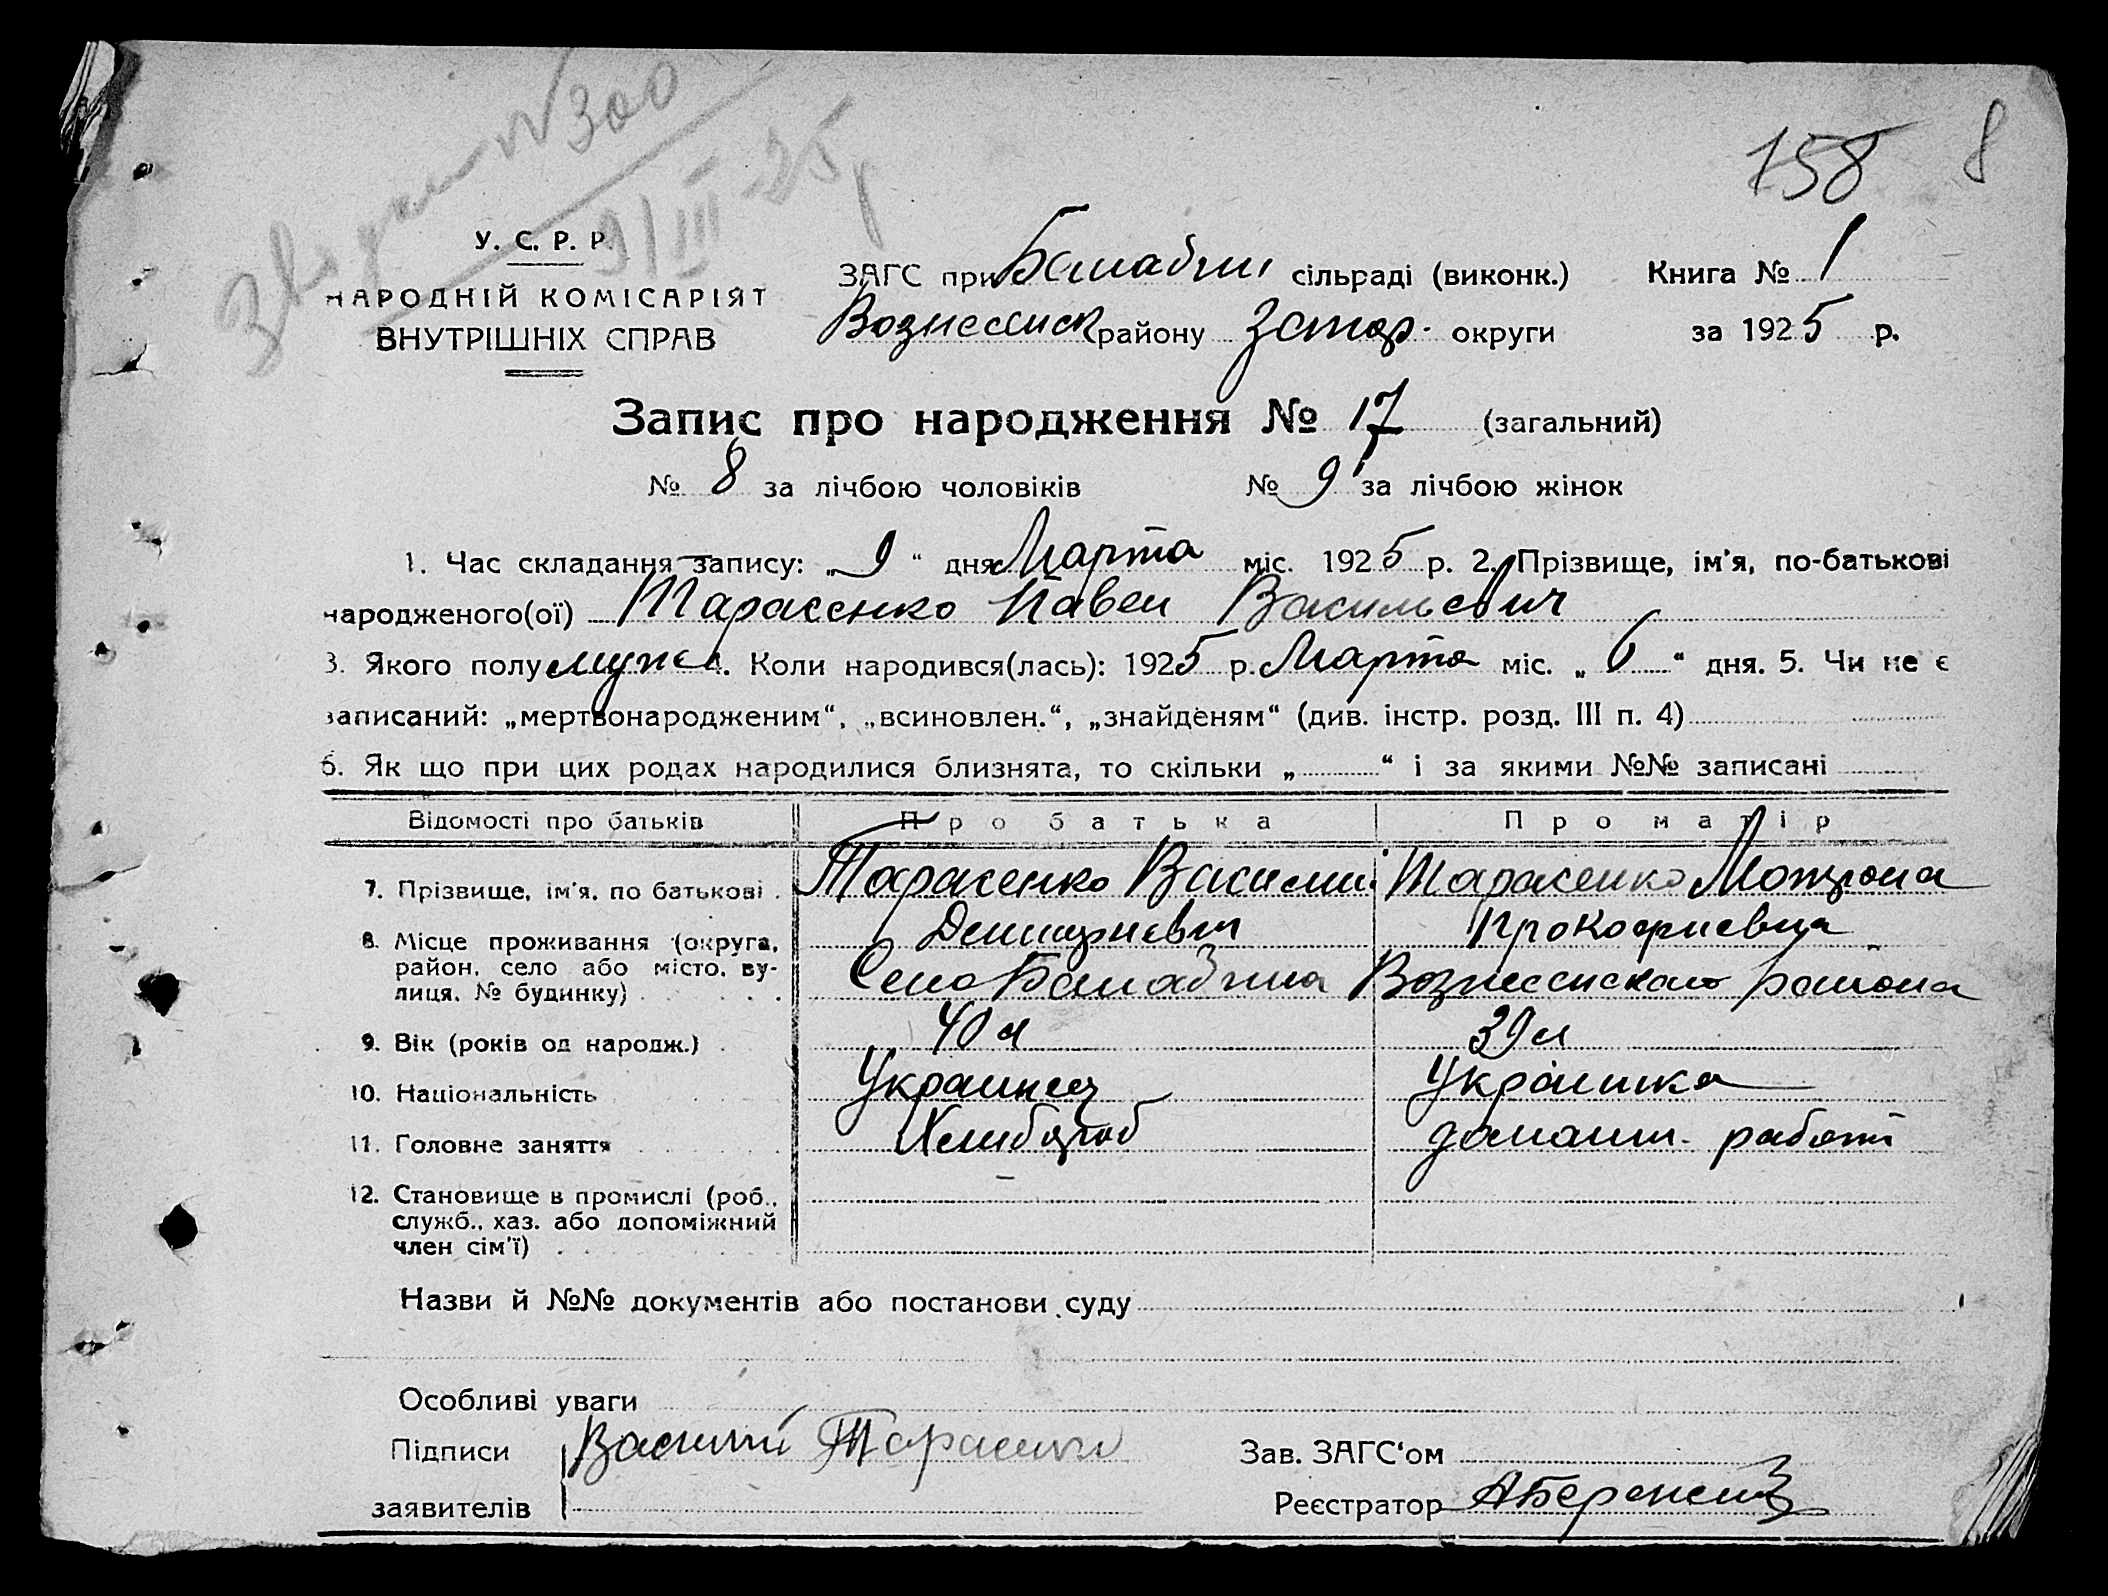 № 300
9/III 25 р
158 8
У. С. Р. Р.
НАРОДНІЙ КОМІСАРІЯТ
ВНУТРІШНІХ СПРАВ
ЗАГС при Балабин сільраді (виконк.) Книга № 1
Вознесенск району Запор. округи за 1925 р.
Запис про народження № 17 (загальний)
№ 8 за лічбою чоловіків № 9 за лічбою жінок
1. Час складання запису: „9“ дня Марта міс. 1925 р. 2. Прізвище, ім'я, по-батькові
народженого(ої) Тарасенко Павел Васильевич
3. Якого полу муж 4. Коли народився(лась): 1925 р. Марта міс. „6“ дня. 5. Чи не є
записаний: „мертвонародженим“, „всиновлен.“, „знайденям“ (див. інстр. розд. III п. 4)
6. Як що при цих родах народилися близнята, то скільки „ “ і за якими №№ записані
Відомості про батьків Про батька Про матір
7. Прізвище, ім'я, по батькові . Тарасенко Василий Тарасенко Мотрона
Дмитриевич Прокофиевна
8. Місце проживання (округа,
район, село або місто, ву-
лиця, № будинку) Село Балабина Вознесенского района
9. Вік (років од народж.) 40 л 39 л
10. Національність Украинец Украинка
11. Головне заняття Хлебороб домашн. работы
12. Становище в промислі (роб.,
служб., хаз. або допоміжний
член сім'ї)
Назви й №№ документів або постанови суду
Особливі уваги
Підписи Василий Тарасенко Зав. ЗАГС'ом
заявителів Реєстратор